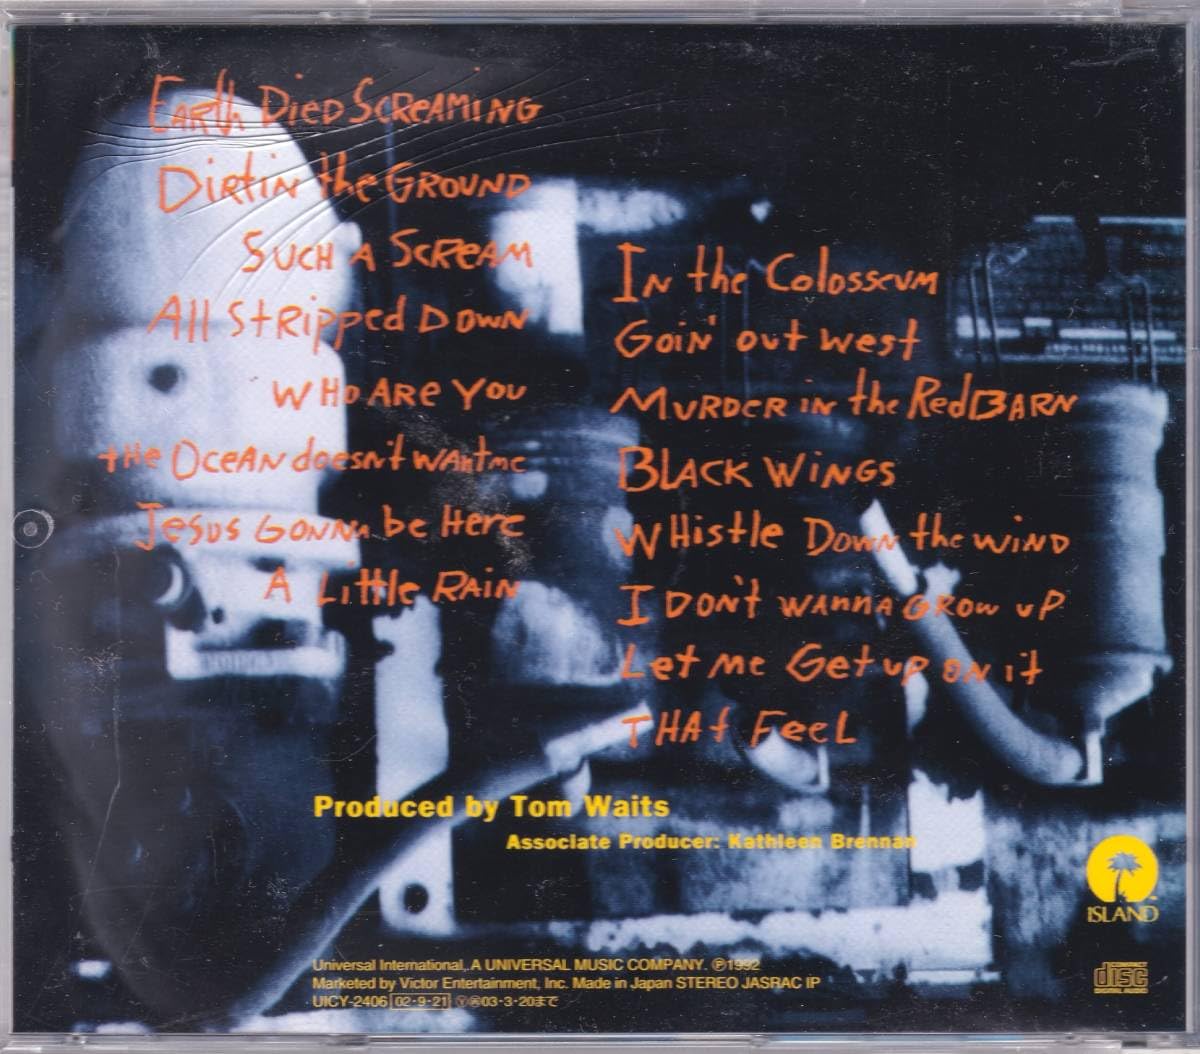 Earth Died Screaming
Dirt in the Ground
Such a Scream
All Stripped Down
Who Are You
the Ocean doesn't want me
Jesus Gonna be Here
A Little Rain
In the Colosseum
Goin' out west
Murder in the Red Barn
Black Wings
Whistle Down the Wind
I Don't wanna grow up
Let me Get up on it
That Feel
Produced by Tom Waits
Associate Producer: Kathleen Brennan
ISLAND
Universal International, A UNIVERSAL MUSIC COMPANY. ℗1992
Marketed by Victor Entertainment, Inc. Made in Japan STEREO JASRAC IP
UICY-2406 02・9・21 Ⓨ㊫03・3・20まで
COMPACT
disc
DIGITAL AUDIO